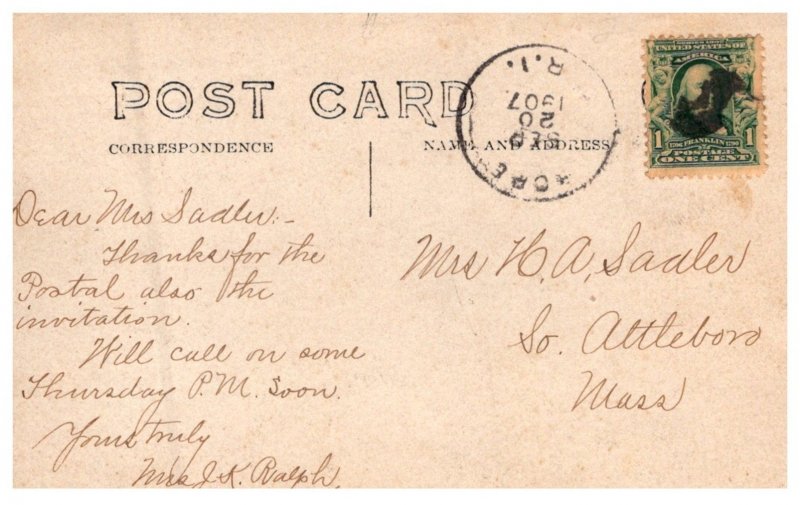 POST CARD
CORRESPONDENCE
NAME AND ADDRESS
R.I.
1907
20
SEP
HOPE
SERIES 1902
UNITED STATES OF
AMERICA
1 1706 FRANKLIN 1790 1
POSTAGE
ONE CENT
Dear Mrs Sadler:-
Thanks for the
Postal also the
invitation.
Will call on some
Thursday P.M. Soon.
Yours truly
Mrs J. K. Ralph.
Mrs H. A. Sadler
So. Attleboro
Mass